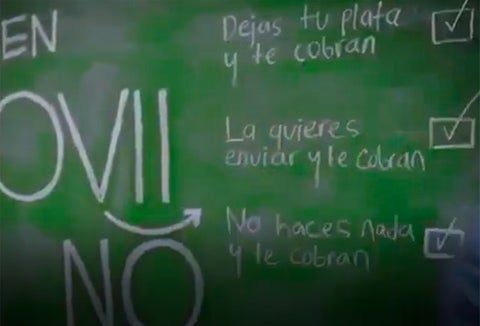 EN
OVII
NO
Dejas tu plata
y te cobran
La quieres
enviar y te cobran
No haces nada
y te cobran